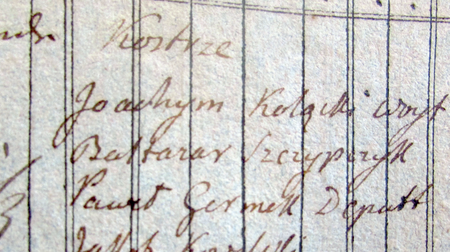 Kostrze
Joachym Kolącki woyt
Baltazar Szczypczyk
Paweł Germek Deputt
Jakob